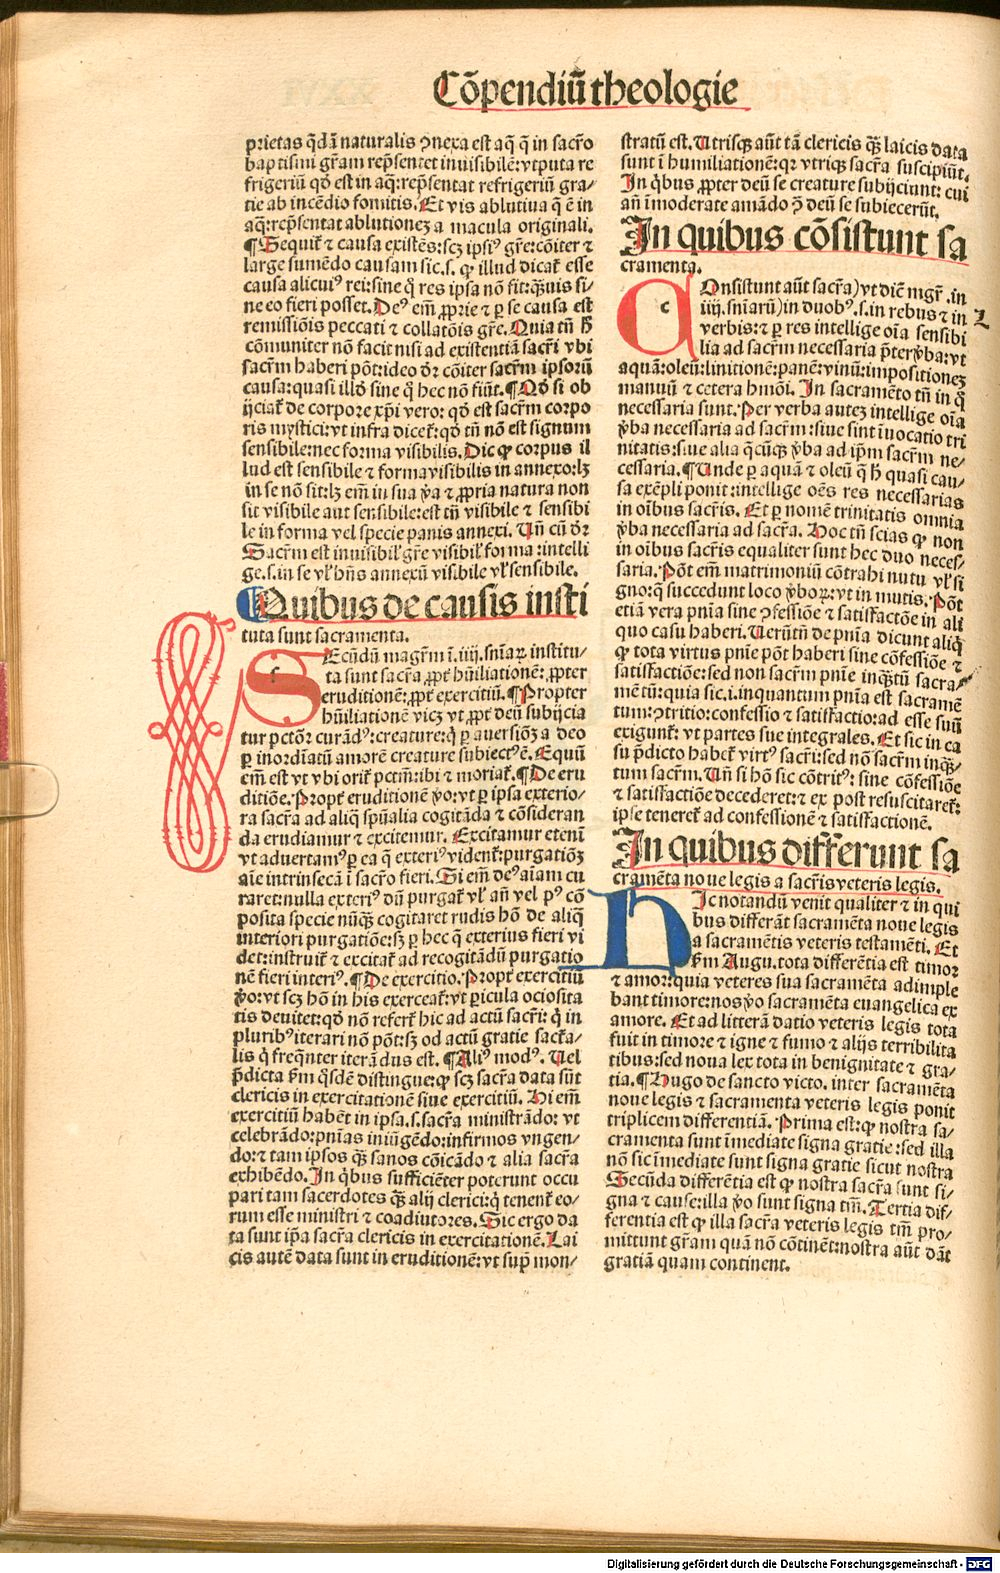 Cōpendiū theologie
prietas q̄dā naturalis ꝯnexa est aq̄ q̄ in sacr̄o
baptismi gr̄am rep̄sentet inuisibilē: vtputa re
frigeriū qd̄ est in aq̄: rep̄sentat refrigeriū gra/
tie ab incēdio fomitis. Et vis ablutiua q̄ ē in
aq̄: rep̄sentat ablutionez a macula originali.
¶ Sequit̄ ⁊ causa existēs: scz ipsiꝰ gr̄e: cōiter ⁊
large sumēdo causam sic .s. ꝙ illud dicat̄ esse
causa alicuiꝰ rei: sine q̄ res ipsa nō fit: q̄uis si/
ne eo fieri posset. Deꝰ em̄ ꝓprie ⁊ ꝑ se causa est
remissiōis peccati ⁊ collatōis gr̄e. Quia tn̄ h̄
cōmuniter nō facit nisi ad existentiā sacr̄i vbi
sacr̄m haberi pōt: ideo dr̄ cōiter sacr̄m ipsorū
causa: quasi illd̄ sine q̄ hec nō fiūt. ¶ Qd̄ si ob
ijciat̄ de corpore xp̄i vero: qd̄ est sacr̄m corpo
ris mystici: vt infra dicet̄: qd̄ tn̄ nō est signum
sensibile: nec forma visibilis. Dic ꝙ corpus il
lud est sensibile ⁊ forma visibilis in annexo: lz
in se nō sit: lz em̄ in sua v̄a ⁊ ꝓpria natura non
sit visibile aut sensibile: est tn̄ visibile ⁊ sensibi
le in forma vel specie panis annexi. Un̄ cū dr̄
Sacr̄m est inuisibil̄ gr̄e visibil̄ forma: intelli
ge .s. in se vl̄ hn̄s annexū visibile vl̄ sensibile.
Quibus de causis insti
tuta sunt sacramenta.
SEcūdū magr̄m ī .iiij. sn̄iaꝝ institu/
ta sunt sacr̄a ꝓpt̄ hūiliationē: ꝓpter
eruditionē: ꝓpt̄ exercitiū. ¶ Propter
hūiliationē vicz vt ꝓpt̄ deū subijcia
tur pctōꝝ curādꝰ: creature: q̄ ꝑ auersiōz a deo
ꝑ inordiatū amorē creature subiectꝰ ē. Equū
em̄ est vt vbi orit̄ pctm̄: ibi ⁊ moriat̄. ¶ De eru
ditiōe. Propt̄ eruditionē v̄o: vt ꝑ ipsa exterio/
ra sacr̄a ad aliq̄ spūalia cogitāda ⁊ cōsideran
da erudiamur ⁊ excitemur. Excitamur etenī
vt aduertamꝰ ꝑ ea q̄ exteriꝰ vident̄: purgatiōz
aīe intrinsecā ī sacr̄o fieri. Si em̄ deꝰ aīam cu
raret: nulla exteriꝰ dū purgat̄ vl̄ añ vel pꝰ cō
posita specie nūq̄ cogitaret rudis hō de aliq̄
interiori purgatiōe: sꝫ ꝑ hec q̄ exterius fieri vi
det: instruit̄ ⁊ excitat̄ ad recogitādū purgatio
nē fieri interiꝰ. ¶ De exercitio. Propt̄ exercitiū
v̄o: vt scz hō in his exerceat̄: vt ꝑicula ociosita
tis deuitet: qd̄ nō refert̄ hic ad actū sacr̄i: q̄ in
pluribꝰ iterari nō pōt: sꝫ od actū gratie sacra/
lis q̄ freq̄nter iterādus est. ¶ Aliꝰ modꝰ. Uel
p̄dicta ẜm q̄sdē distingue: ꝙ scz sacr̄a data sūt
clericis in exercitationē siue exercitiū. Hi em̄
exercitiū habēt in ipsa .s. sacr̄a ministrādo: vt
celebrādo: pn̄ias iniūgēdo: infirmos vngen/
do: ⁊ tam ipsos q̄ȝ sanos cōicādo ⁊ alia sacr̄a
exhibēdo. In q̄bus sufficiēter poterunt occu
pari tam sacerdotes q̄ȝ alij clerici: q̄ tenent̄ eo/
rum esse ministri ⁊ coadiutores. Sic ergo da
ta sunt ip̄a sacr̄a clericis in exercitationē. Lai
cis autē data sunt in eruditionē: vt sup̄ mon/
stratū est. Utrisqȝ aūt tā clericis q̄ȝ laicis data
sunt ī humiliationē: qꝛ vtriqȝ sacr̄a suscipiūt.
In q̄bus ꝓpter deū se creature subijciunt: cui
añ īmoderate amādo ꝯ̄ deū se subiecerūt.
In quibus cōsistunt sa
cramenta.
COnsistunt aūt sacr̄a) vt diē mgr̄ .in
iiij. sn̄iarū) in duobꝰ .s. in rebus ⁊ in
verbis: ⁊ ꝑ res intellige oīa sensibi
lia ad sacr̄m necessaria p̄ter v̄ba: vt
aquā: oleū: linitionē: panē: vinū: impositionez
manuū ⁊ cetera hmōi. In sacramēto tn̄ in q̄
necessaria sunt. Per verba autez intellige oīa
v̄ba necessaria ad sacr̄m: siue sint īuocatio tri
nitatis: siue alia q̄cūqȝ v̄ba ad ip̄m sacr̄m ne/
cessaria. ¶ Unde ꝑ aquā ⁊ oleū q̄ h̄ quasi cau/
sa exēpli ponit: intellige oēs res necessarias
in oībus sacr̄is. Et ꝑ nomē trinitatis omnia
v̄ba necessaria ad sacr̄a. Hoc tn̄ scias ꝙ non
in oībus sacr̄is equaliter sunt hec duo neces/
saria. Pōt em̄ matrimoniū cōtrahi nutu vl̄ si
gno: q̄ succedunt loco v̄boꝝ: vt in mutis. Pōt
etiā vera pn̄ia sine ꝯfessiōe ⁊ satisfactōe in ali
quo casu haberi. Uerūtn̄ de pn̄ia dicunt aliq̄
ꝙ tota virtus pn̄ie pōt haberi sine cōfessiōe ⁊
satisfactiōe: sed non sacr̄m pn̄ie inq̄tū sacra/
mētū: quia sic .i. inquantum pn̄ia est sacramē
tum: ꝯtritio: confessio ⁊ satisfactio: ad esse suū
exigunt̄: vt partes sue integrales. Et sic in ca
su p̄dicto habet̄ virtꝰ sacr̄i: sed nō sacr̄m inq̄ȝ/
tum sacr̄m. Un̄ si hō sic cōtritꝰ: sine cōfessiōe
⁊ satisfactiōe decederet: ⁊ ex post resuscitaret̄:
ipse teneret̄ ad confessionē ⁊ satisfactionē.
In quibus differunt sa
cramēta noue legis a sacr̄is veteris legis.
HIc notandū venit qualiter ⁊ in qui
bus differāt sacramēta noue legis
a sacramētis veteris testamēti. Et
ẜm Augu. tota differētia est timor
⁊ amor: quia veteres sua sacramēta adimple
bant timore: nos v̄o sacramēta euangelica ex
amore. Et ad litterā datio veteris legis tota
fuit in timore ⁊ igne ⁊ fumo ⁊ alijs terribilita
tibus: sed noua lex tota in benignitate ⁊ gra/
tia. ¶ Hugo de sancto victo. inter sacramēta
noue legis ⁊ sacramenta veteris legis ponit
triplicem differentiā. Prima est: ꝙ nostra sa/
cramenta sunt īmediate signa gratie: sed illa
nō sic īmediate sunt signa gratie sicut nostra
Secūda differētia est ꝙ nostra sacr̄a sunt si/
gna ⁊ cause: illa v̄o sunt signa tm̄. Tertia dif/
ferentia est ꝙ illa sacr̄a veteris legis tm̄ pro/
mittunt gr̄am quā nō cōtinēt: nostra aūt dāt
gratiā quam continent.
Digitalisierung gefördert durch die Deutsche Forschungsgemeinschaft - DFG